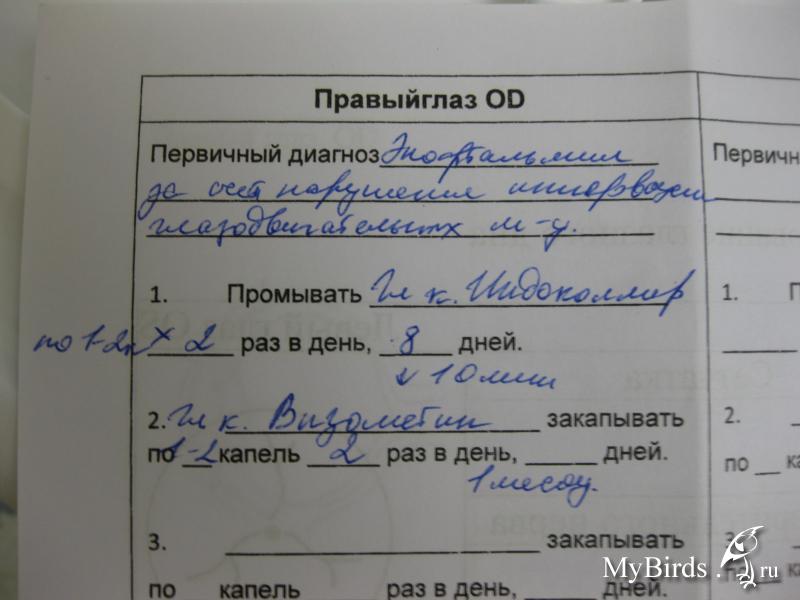 Правыйглаз OD
Первичный диагноз Экзофтальмия
за счет нарушения иннервации
глазодвигательных м-ц.
Первичн
1. Промывать Гл к. Индоколлир
1. П
по 1-2к × 2 раз в день, 8 дней.
↓ 10 мин
2. Гл к. Визометин закапывать
2.
по 1-2 капель 2 раз в день, дней.
по ка
1 месяц.
3. закапывать
3.
по капель раз в день, дней.
по ка
MyBirds.ru